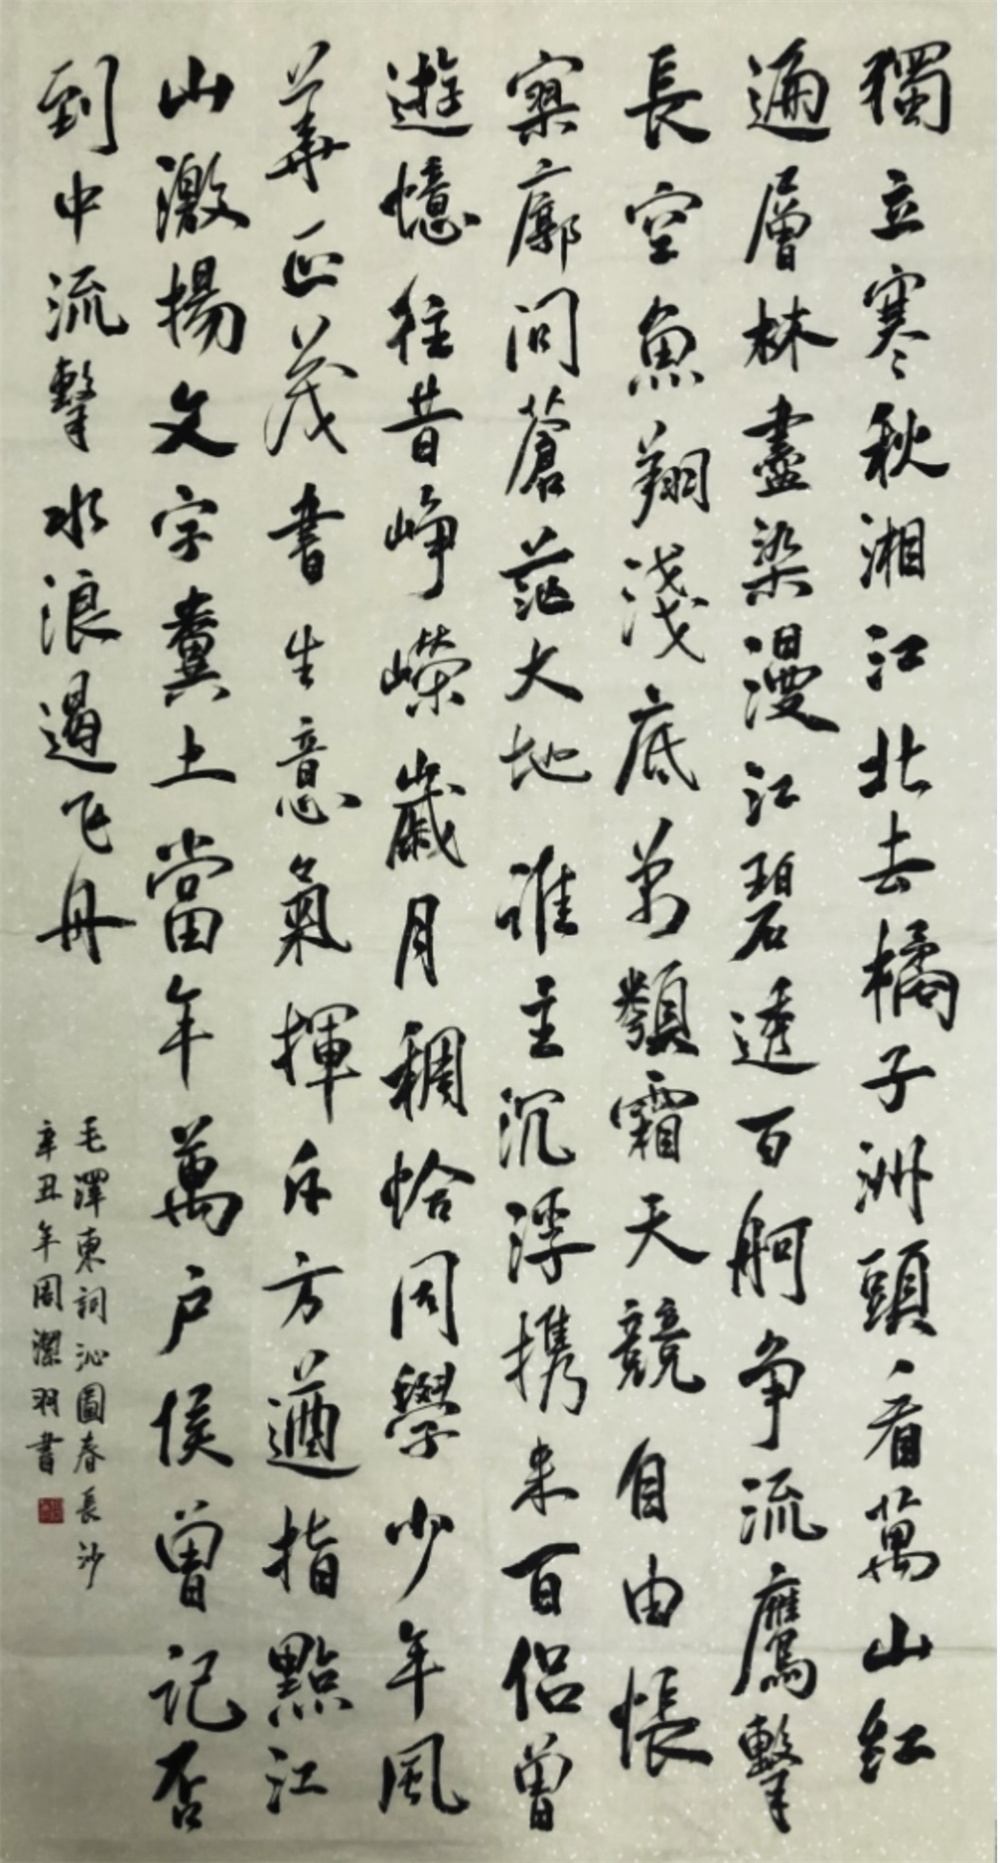 獨立寒秋湘江北去橘子洲頭看萬山紅
遍層林盡染漫江碧透百舸争流鷹擊
長空魚翔淺底万類霜天競自由悵
寥廓問蒼茫大地誰主沉浮携来百侣曾
遊憶往昔崢嶸歲月稠恰同學少年風
華正茂書生意氣揮斥方遒指點江
山激揚文字糞土當年萬户侯曾記否
到中流擊水浪遏飞舟
毛澤東詞沁園春長沙
辛丑年周潔羽書